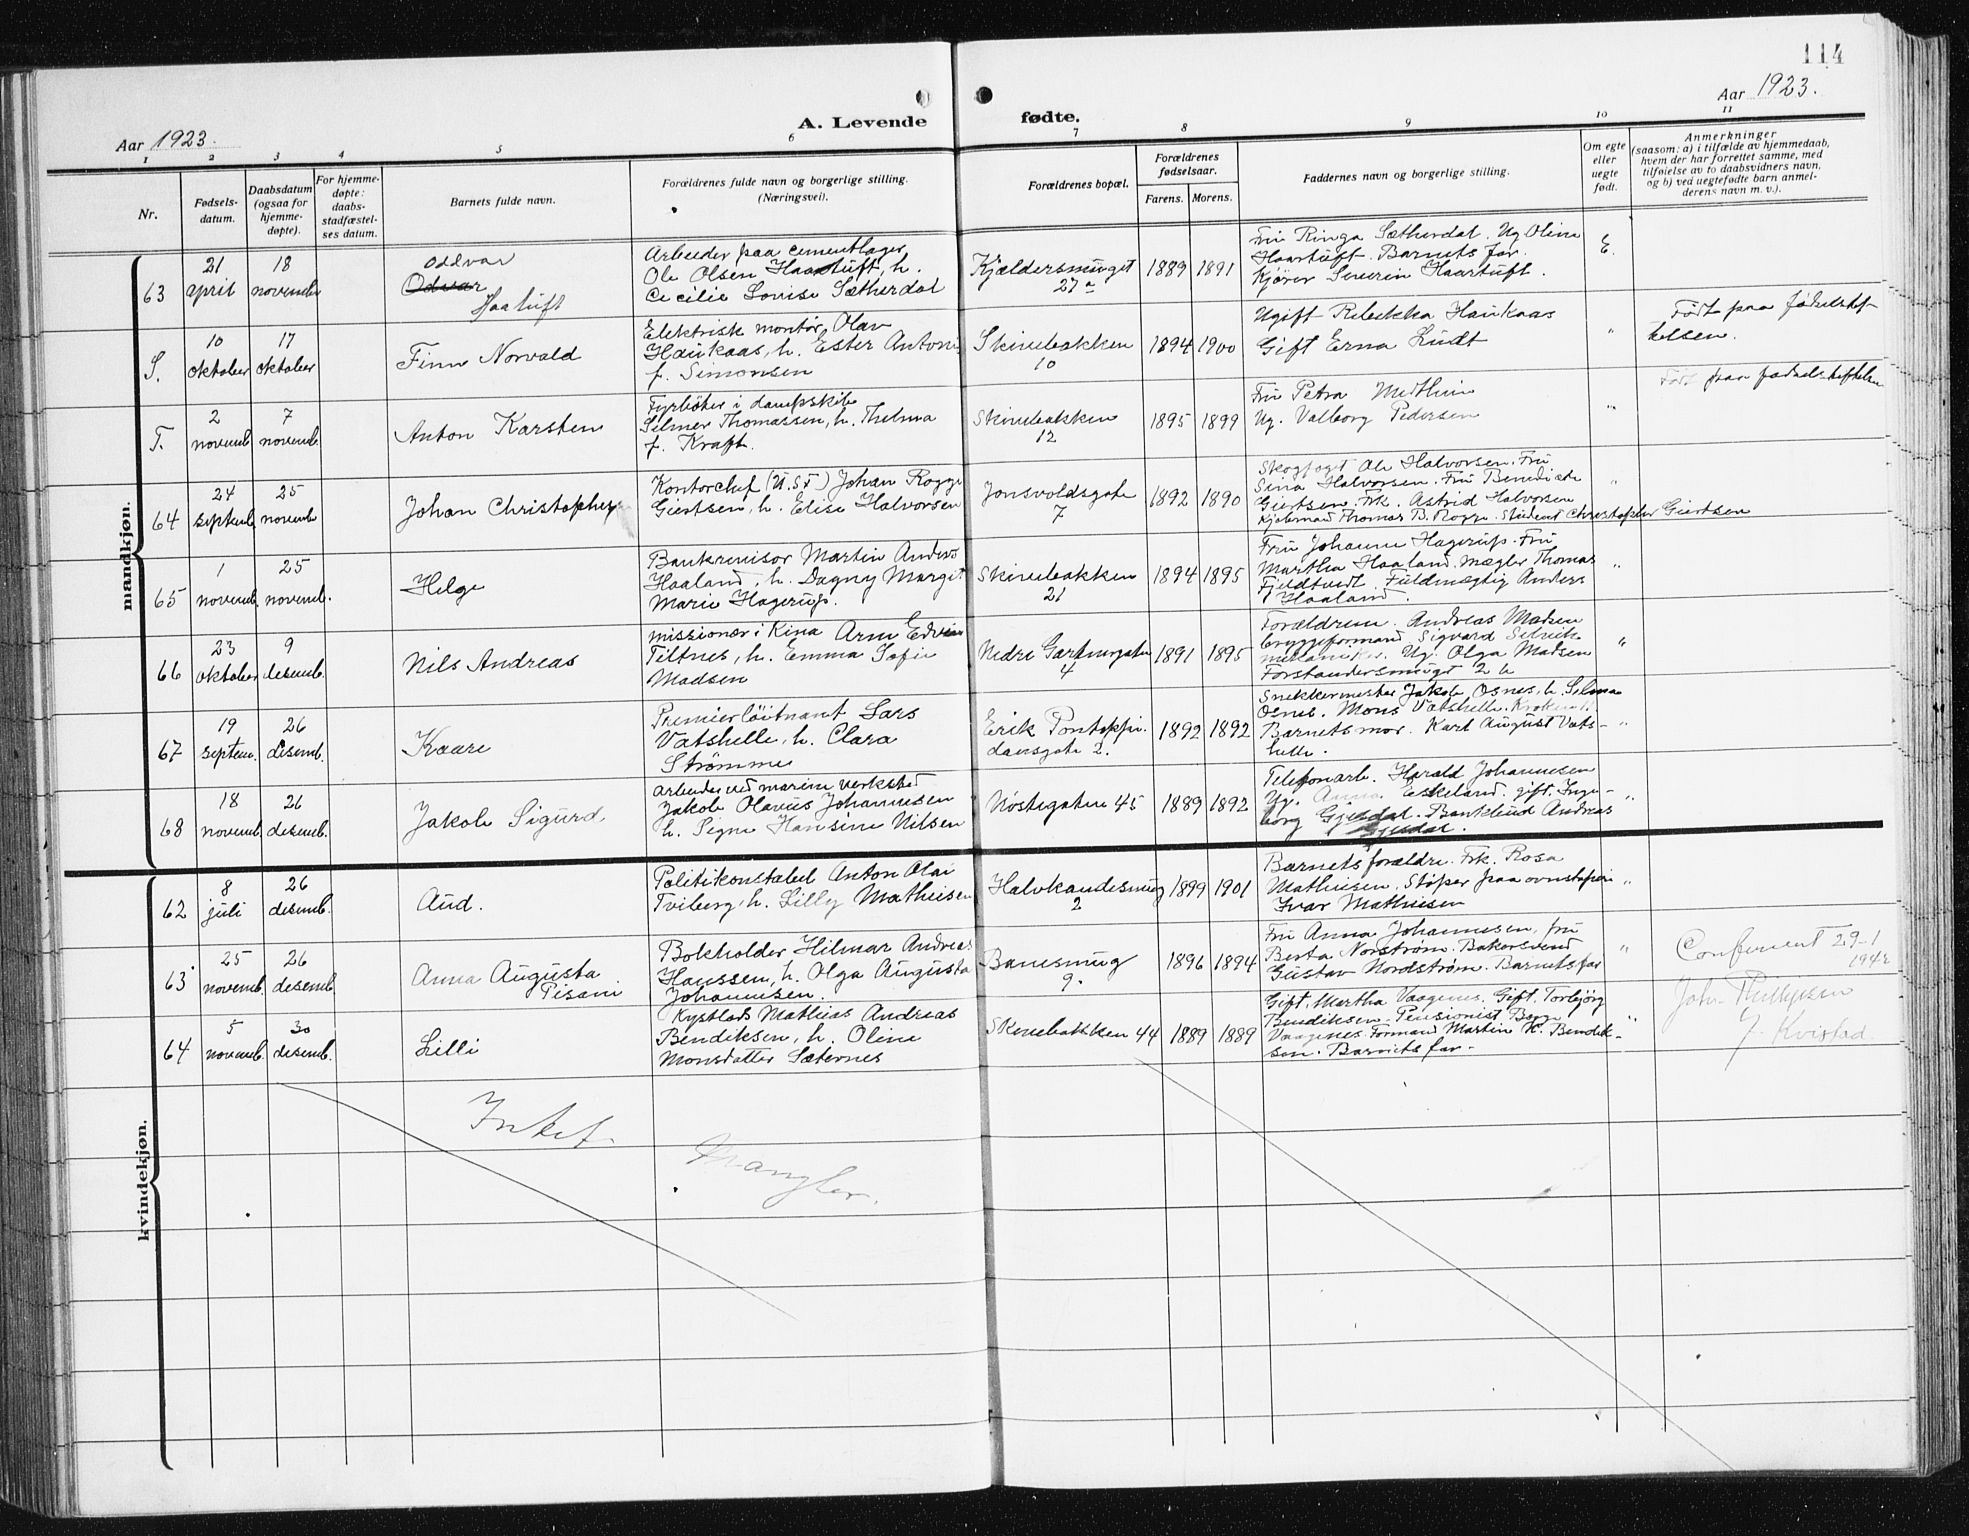 114
Aar 1923.
A. Levende fødte.
Aar 1923.
1 2 3 4 5 6 7 8 9 10 11
Nr.
Fødsels-
datum.
Daabsdatum
(ogsaa for
hjemme-
døpte).
For hjemme-
døpte:
daabs-
stadfæstel-
ses datum.
Barnets fulde navn.
Forældrenes fulde navn og borgerlige stilling.
(Næringsvei).
Forældrenes bopæl.
Forældrenes
fødselsaar.
Farens. Morens.
Faddernes navn og borgerlige stilling.
Om egte
eller
uegte
født.
Anmerkninger
(saasom: a) i tilfælde av hjemmedaab,
hvem der har forrettet samme, med
tilføielse av to daabsvidners navn,
og b) ved uegtefødte barn anmel-
derens navn m. v.).
mandkjøn.
63
21
april
18
novemb.
Oddvar
Odvar
Haatuft
Arbeider paa cementlager
Ole Olsen Haartuft, h.
Cecilie Lovise Sætherdal
Kjældersmuget
27a
1889 1891
Fru Ringa Sætherdal. Ug. Oline
Haartuft. Barnets far.
Kjører Severin Haartuft.
E.
S.
10
oktober
17
oktober
Finn Norvald
Elektrisk montør Olav
Haukaas, h. Ester Antonie
f. Simonsen
Skivebakken
10
1894 1900
Ugift Rebekka Haukaas
Gift Erna Lüdt
"
Født paa fødselstif-
telsen.
T.
2
novemb.
7
novemb.
Anton Karsten
Fyrbøter i dampskib
Selmer Thomassen, h. Thelma
f. Kraft.
Skivebakken
12
1895 1899
Fru Petra
Ug. Valborg Pedersen
"
Født paa fødselstiftelsen
64
24
septemb.
25
novemb.
Johan Christopher
Kontorchef (U.S.F.) Johan Rogge
Giertsen, h. Elise Halvorsen
Jonsvoldsgate
7
1892 1890
Skogfogt Ole Halvorsen. Fru
Sina Halvorsen. Fru Benedicte
Giertsen. Frk. Astrid Halvorsen
Kjøbmand Thomas B. Rogge. Student Christopher Giertsen
"
65
1
novemb.
25
novemb.
Helge
Bankrevisor Martin Anders
Haaland, h. Dagny Margit
Marie Hagerup.
Skivebakken
21
1894 1895
Fru Johanne Hagerup. Fru
Martha Haaland. Mægler Thomas
Fjeldtvedt. Fuldmægtig Anders
Haaland.
"
66
23
oktober
9
desemb.
Nils Andreas
Missionær i Kina Arne Edvin
Tiltnes, h. Emma Sofie
Madsen
Nedre Gartnergaten
4
1891 1895
Forældrene. Andreas Madsen
bryggeformand. Sigvard
mekaniker. Ug. Olga Madsen
Forstandersmuget 2 b
"
67
19
septem.
26
desemb.
Kaare
Premierløitnant Lars
Vatshelle, h. Clara
Strømme
Erik Pontoppi-
dansgate 2.
1892 1892
Snekkermester Jakob Osnes, h. Selma
Osnes. Mons Vatshelle.
Barnets mor. Karl August Vats-
helle.
"
68
18
novemb.
26
desemb.
Jakob Sigurd.
Arbeider ved marine verksted
Jakob Olavus Johannesen
h. Signe Hansine Nilsen
Nøstegaten 45
1889 1892
Telefonarb. Harald Johannesen
Ug. Anna Eskeland. gift. Inge-
borg Gjesdal. Bankbud Andreas
Gjesdal.
"
kvindekjøn.
62
8
juli
26
desemb.
Aud.
Politikonstabel Anton Olai
Tviberg, h. Lilly Mathiesen
Halvkandesmug
2
1899 1901
Barnets forældre. Frk. Rosa
Mathiesen. Støper paa ovnstøperi
Ivar Mathiesen
"
63
25
novemb.
26
desemb.
Anna Augusta
Pisani
Bokholder Hilmar Andreas
Hanssen, h. Olga Augusta
Johannesen.
Banesmug
9.
1896 1894
Fru Anna Johannesen, fru
Berta Nordstrøm. Bakersvend
Gustav Nordstrøm. Barnets far
"
64
5
novemb.
30
desemb.
Lilli
Kystlods Mathias Andreas
Bendiksen, h. Oline
Monsdatter Sæternes
Skivebakken 44
1889 1889
Gift. Martha Vaagenes. Gift. Torbjørg
Bendiksen. Pensionist Børge
Vaagenes. Formand Martin K. Bendik-
sen. Barnets far.
"
Conferert 29-1
1942
Joh.
J. Kvistad
Intet
Mangler.